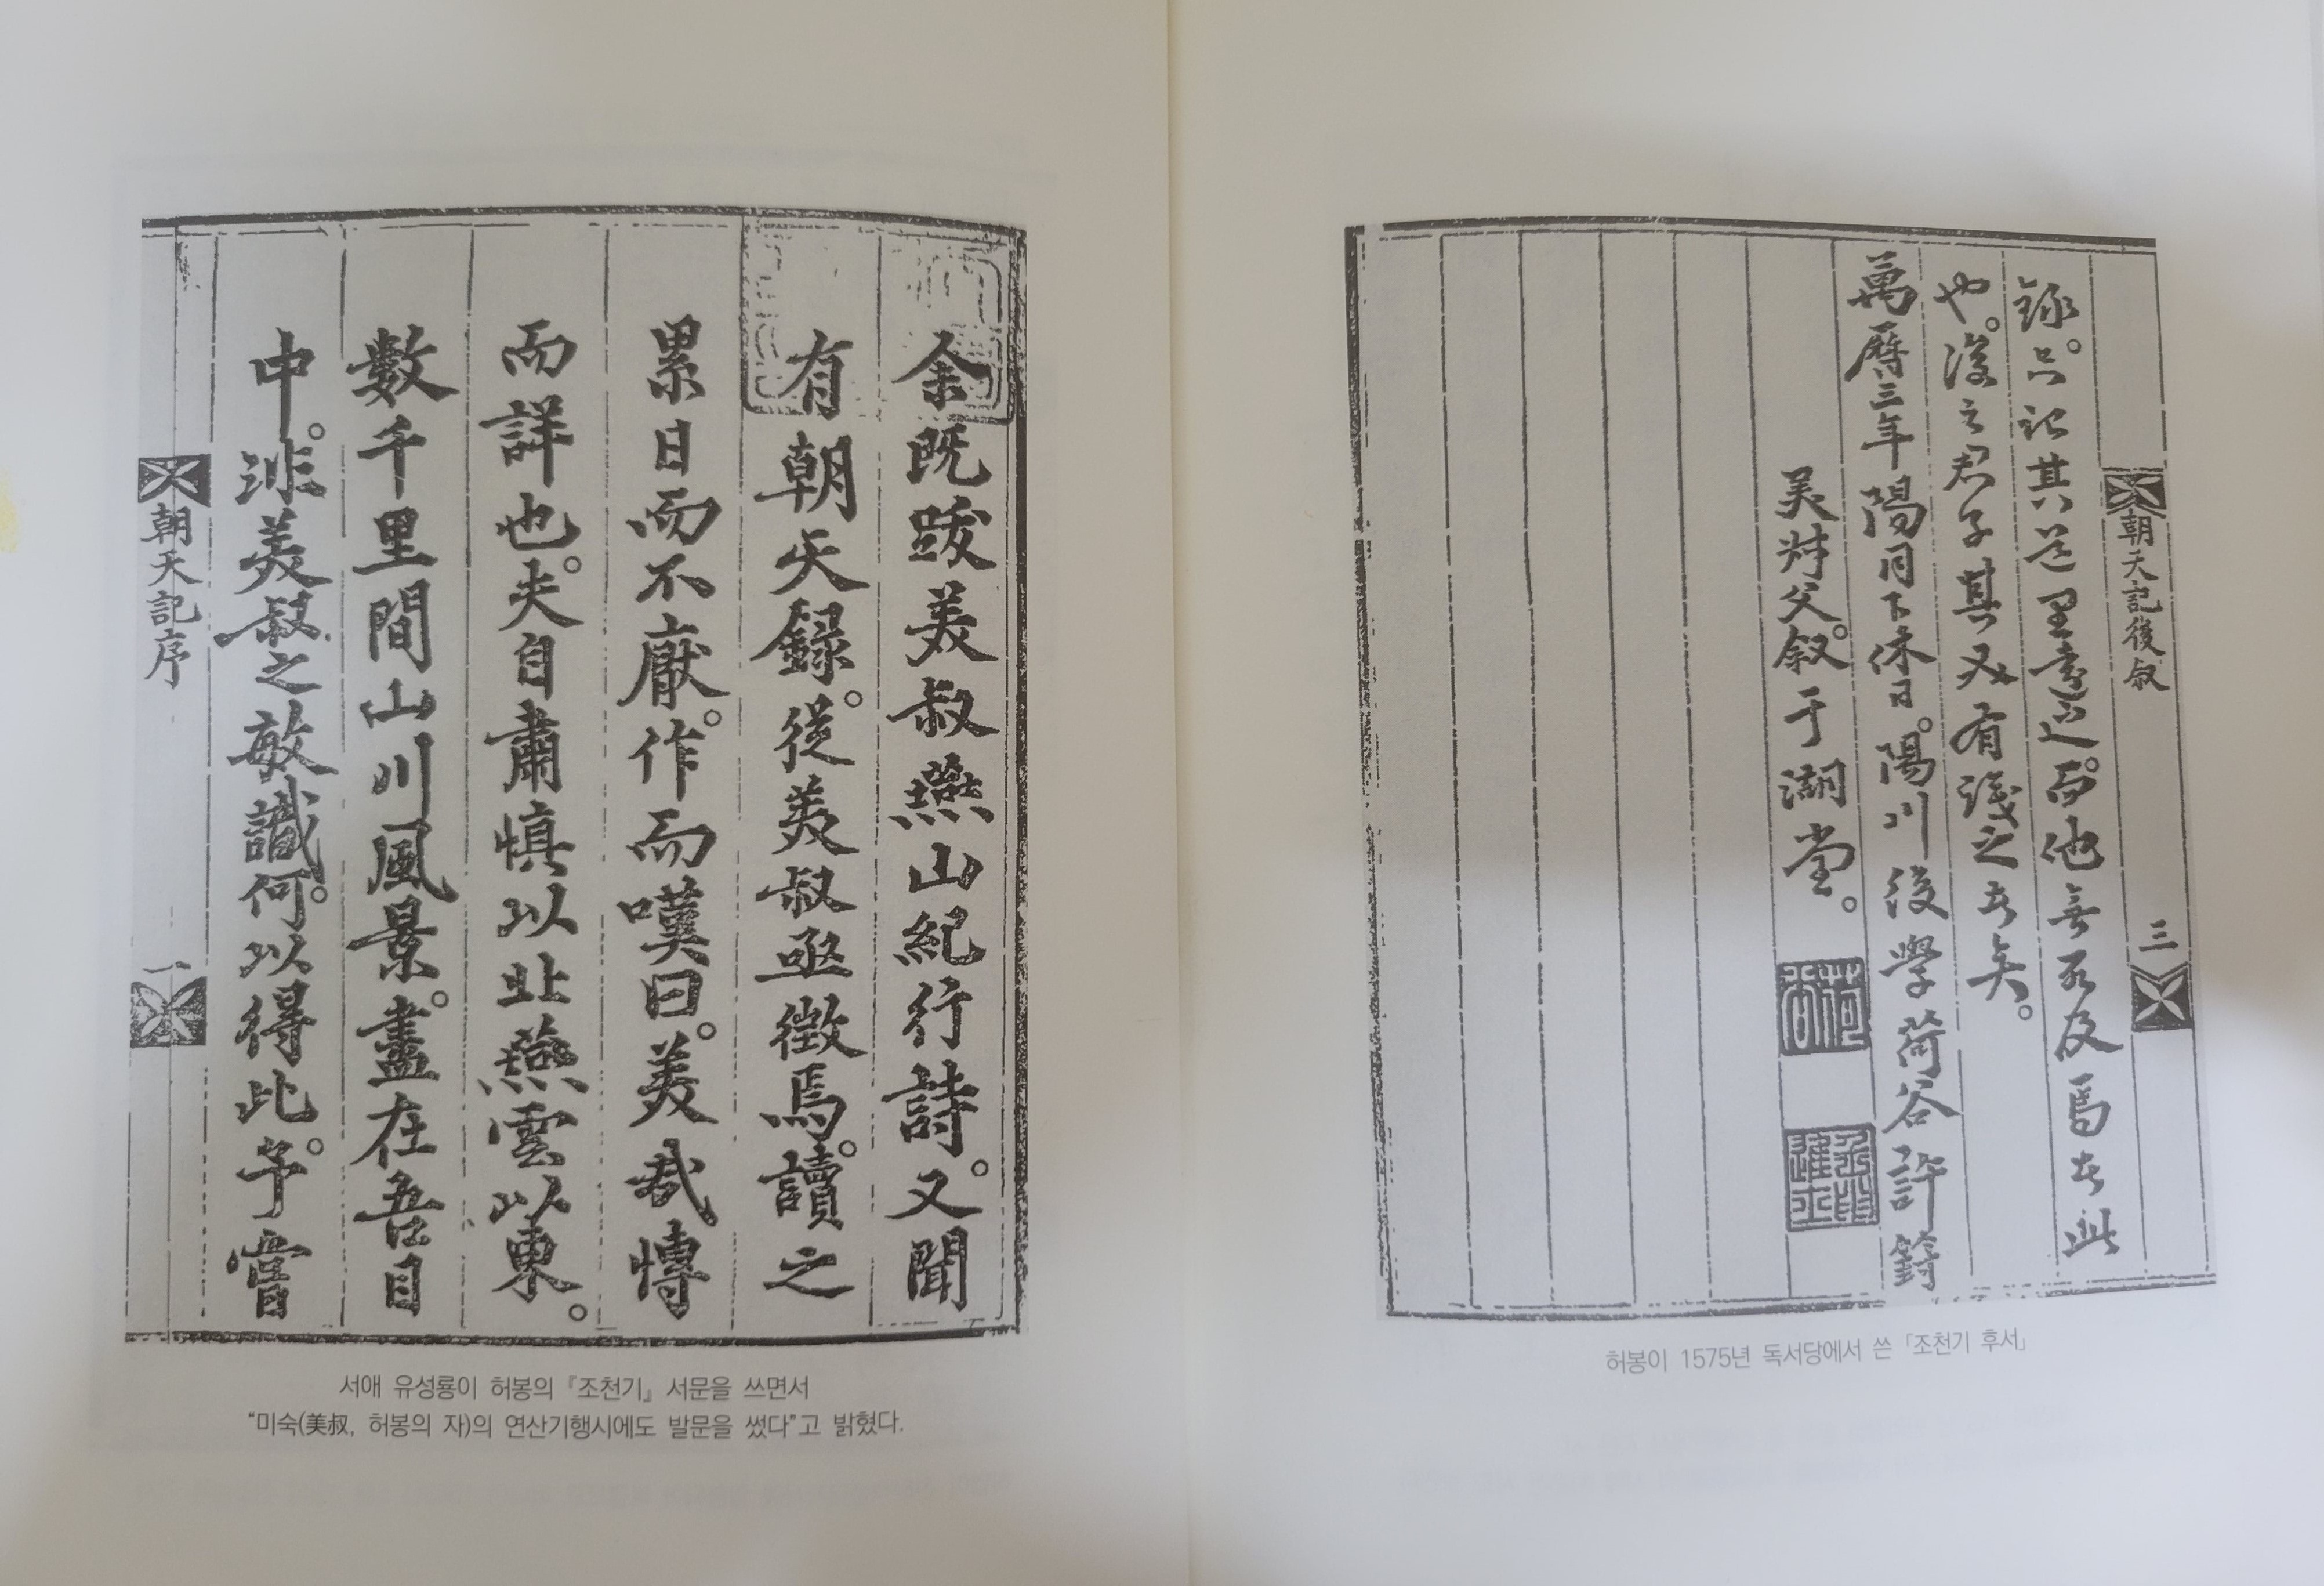 余既跋美叔燕山紀行詩。又聞
有朝天錄。從美叔亟徵焉。讀之
累日而不厭。作而嘆曰。美哉博
而詳也。夫自肅愼以北燕雲以東。
數千里間山川風景。盡在吾目
中。非美叔之敏識何。以得此。予嘗
朝天記序
一
서애 유성룡이 허봉의 『조천기』 서문을 쓰면서
“미숙(美叔, 허봉의 자)의 연산기행시에도 발문을 썼다”고 밝혔다.
朝天記後叙
三
錄。只記其道里遠近。而他無所及焉者此
也。後之君子其又有議之者矣。
萬曆三年陽月下休日。陽川後學荷谷許篈
美叔父。叙于湖堂。
허봉이 1575년 독서당에서 쓴 「조천기 후서」